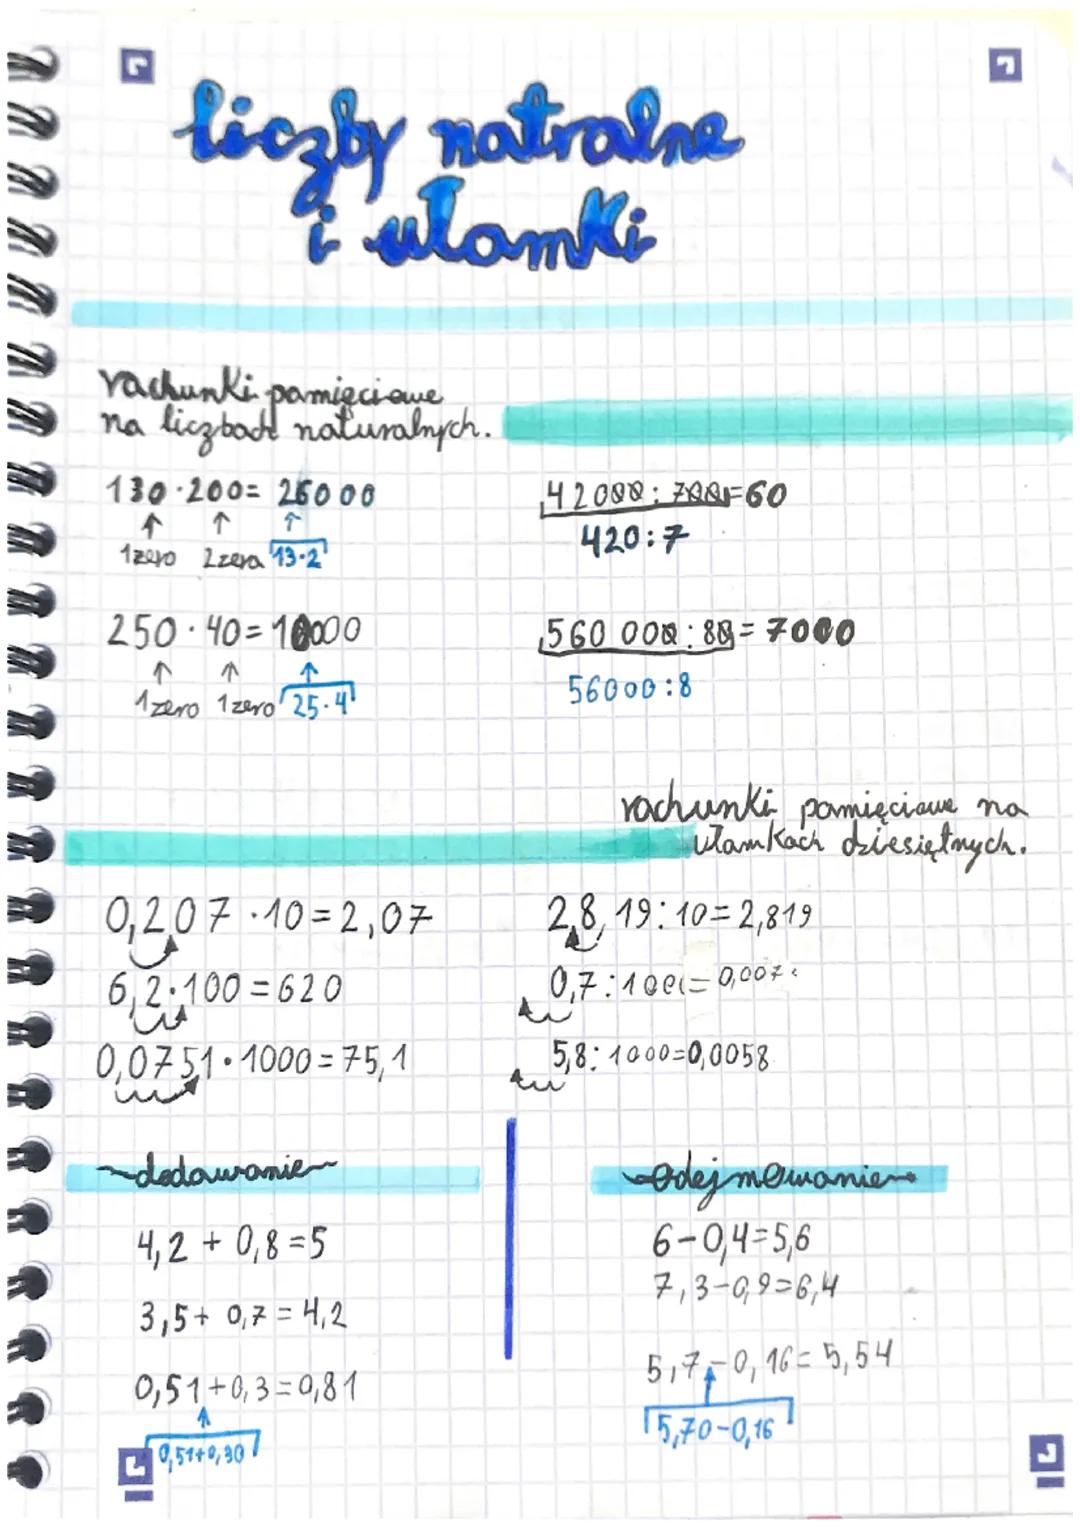 liczby natralne
i ułamki
rachunki pamięciowe
na liczbach naturalnych.
130 · 200 = 26000
↑ ↑ ↑
1zero 2zera 13·2
42000 : 700 = 60
420 : 7
250 · 40 = 10000
↑ ↑ ↑
1zero 1zero 25·4
560 000 : 80 = 7000
56000 : 8
rachunki pamięciowe na
ułamkach dziesiętnych.
0,207 · 10 = 2,07
6,2 · 100 = 620
0,0751 · 1000 = 75,1
28,19 : 10 = 2,819
0,7 : 100 = 0,007
5,8 : 1000 = 0,0058
dodawanie
4,2 + 0,8 = 5
3,5 + 0,7 = 4,2
0,51 + 0,3 = 0,81
↑
0,51+0,30
odejmowanie
6 - 0,4 = 5,6
7,3 - 0,9 = 6,4
5,7 - 0,16 = 5,54
↑
5,70 - 0,16